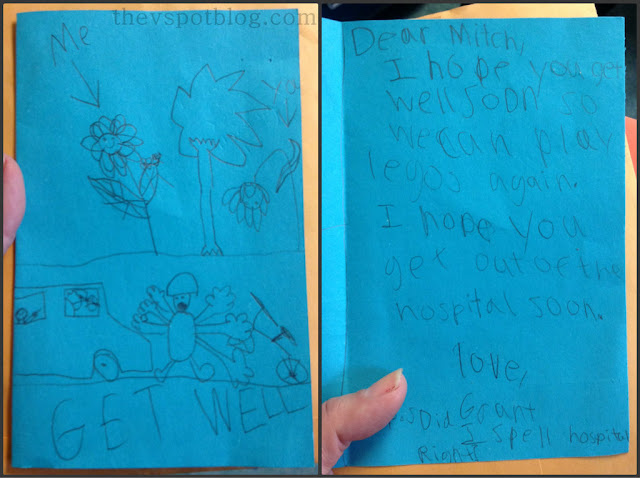 thevspotblog.com
Me
you
GET WELL
Dear Mitch,
I hope you get
well soon so
we can play
legos again.
I hope you
get out of the
hospital soon.
love,
Grant
P.S Did I spell hospital
Right